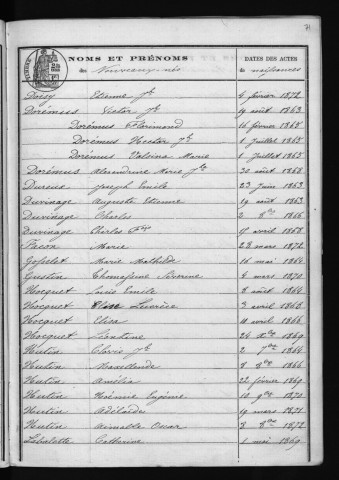 71
NOMS ET PRÉNOMS
DATES DES ACTES
des Nouveaux-nés
de naissances
Doisy Etienne Jh 4 février 1872
Dorémus Victor Jh 19 août 1863
Dorémus Florimond 16 février 1865
Dorémus Hector Jh 1 Juillet 1865
Dorémus Valsina Marie 1 Juillet 1865
Dorémus Alexandrine Marie 30 août 1868
Dureux Joseph Emile 23 Juin 1863
Duvinage Auguste Etienne 19 août 1863
Duvinage Charles 2 8bre 1866
Duvinage Charles Fçois 17 avril 1868
Frison Marie 28 mars 1872
Gosselet Marie Mathilde 16 mai 1864
Gustin Thomassine Séverine 4 mars 1870
Hocquet Louis Emile 8 avril 1864
Hocquet Elise Lucrèce 3 avril 1865
Hocquet Elisa 10 avril 1866
Hocquet Léontine 24 Xbre 1869
Hutin Clovis Jh 2 7bre 1864
Hutin Maxellende 8 8bre 1866
Hutin Amélia 22 février 1869
Hutin Noémie Eugénie 10 9bre 1870
Hutin Adélaïde 19 mars 1871
Hutin Aimable Oscar 8 8bre 1872
Labalette Catherine 1 mai 1869